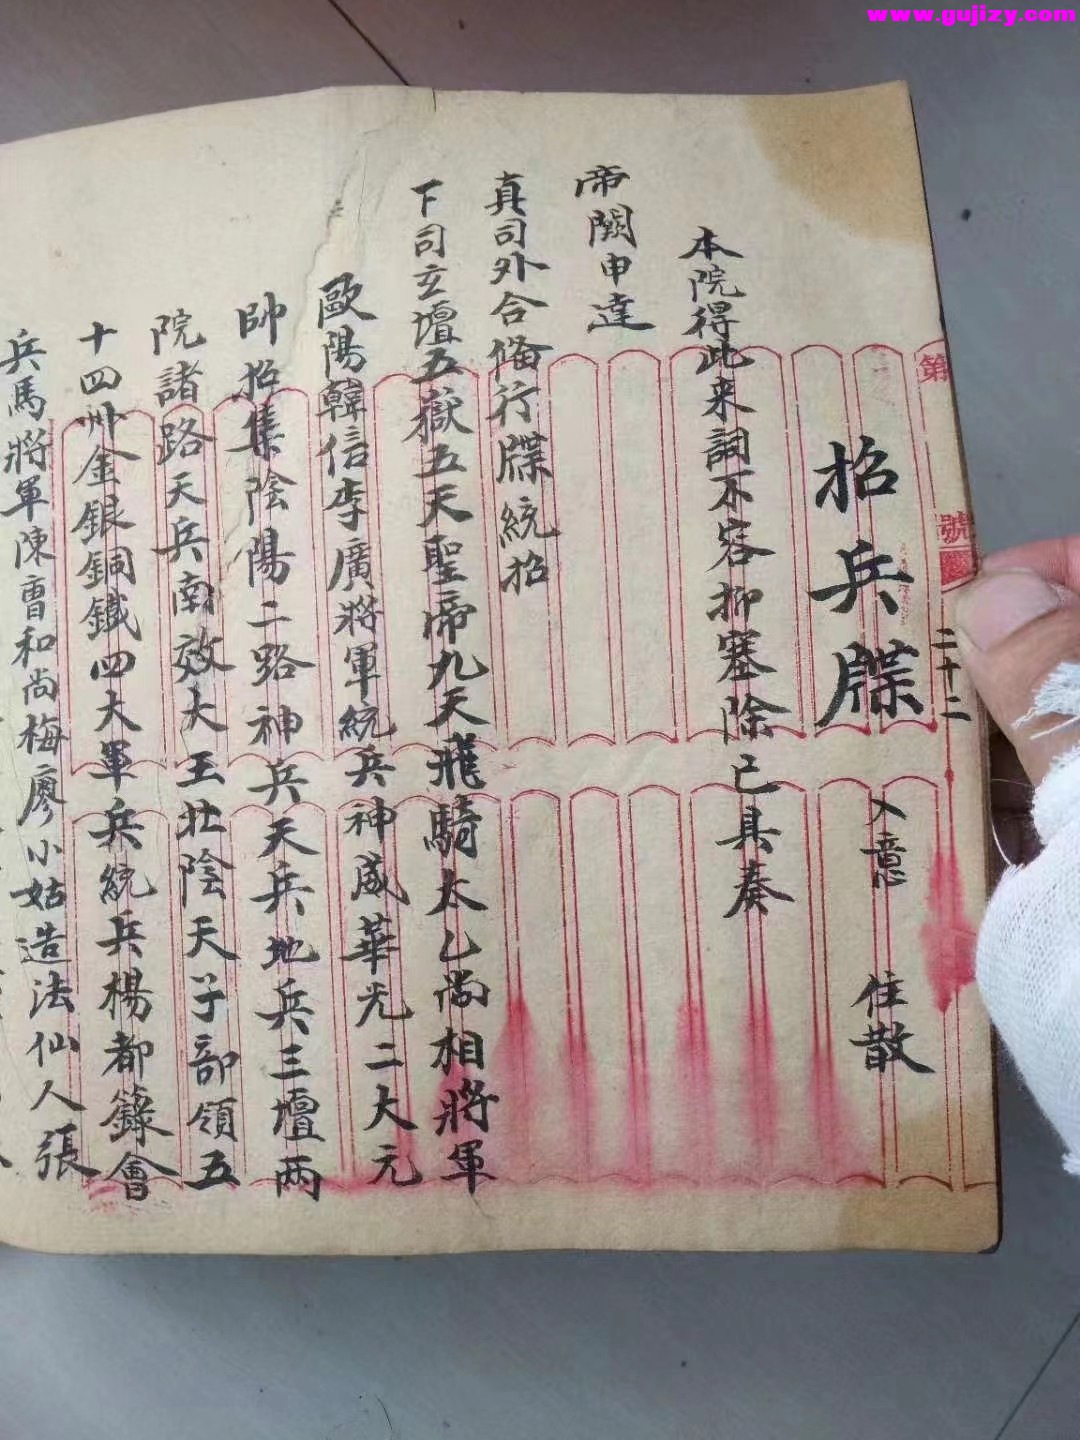 www.gujizy.com
第 號 二十二
招兵牒 入意 住散
本院得此来詞不容抑塞除已具奏
帝闕申達
真司外合備行牒統招
下司立壇五嶽五天聖帝九天飛騎太乙尚相將軍
歐陽韓信李廣將軍統兵神威華光二大元
帥招集陰陽二路神兵天兵地兵三壇两
院諸路天兵南效大王壯陰天子部領五
十四州金銀銅鐵四大軍兵統兵楊都籙會
兵馬將軍陳曹和尚梅廖小姑造法仙人張